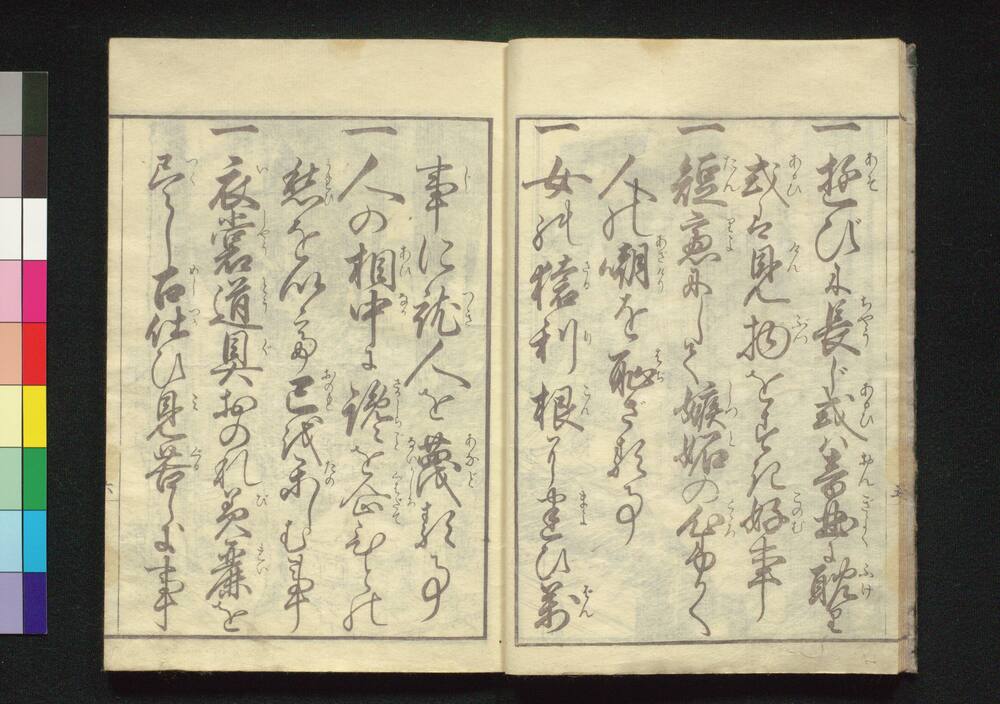 一 遊びに長じ或は音曲に耽り
或は見物をすき好事
一 短慮にして嫉妬の心ふかく
人の嘲を恥ざる事
一 女の猿利根に迷ひ万
事に就人を蔑る事
一 人の相中に讒を企ひとの
愁を以て己を楽しむ事
一 衣裳道具おのれ美麗を
尽し召仕ひ見苦しき事